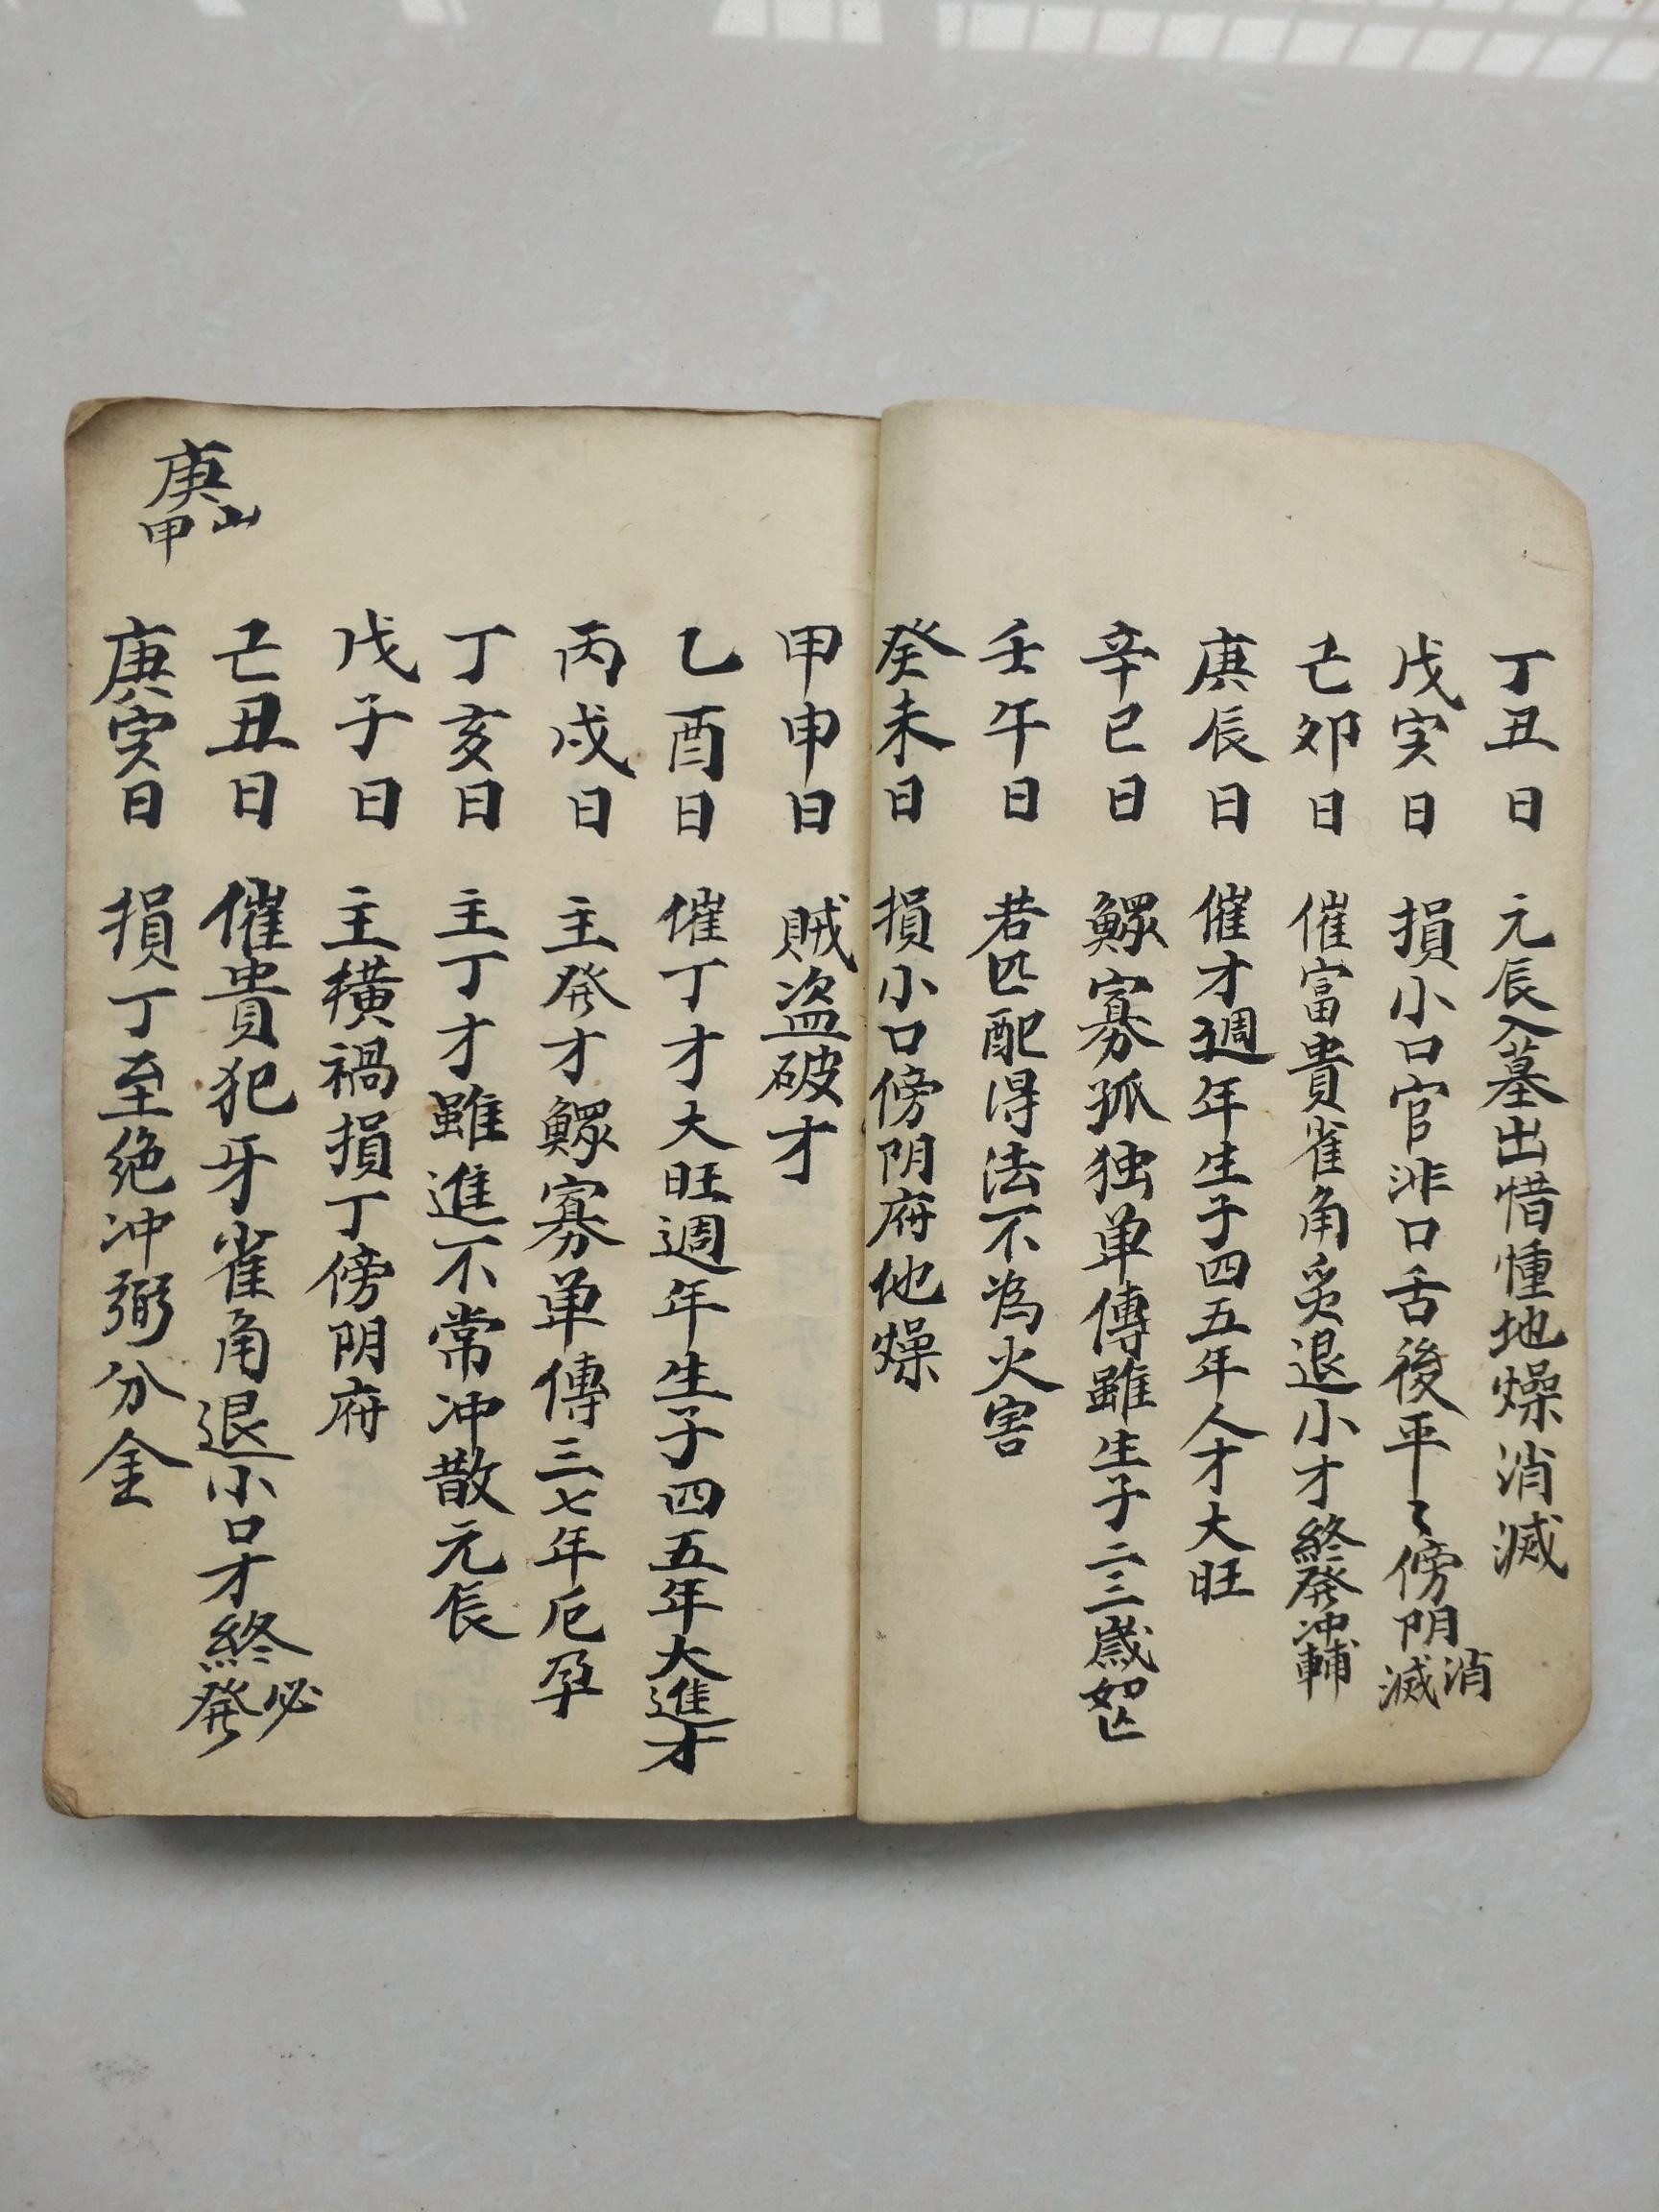 丁丑日 元辰入墓出惜慟地燥消滅
戊寅日 損小口官非口舌後平〻傍阴消滅
己卯日 催富貴雀角炙退小才終発冲輔
庚辰日 催才週年生子四五年人才大旺
辛巳日 鰥寡孤独单傳雖生子二三歳如亡
壬午日 若匹配得法不為火害
癸未日 損小口傍阴府他燥
甲申日 賊盗破才
乙酉日 催丁才大旺週年生子四五年大進才
丙戌日 主発才鰥寡单傳三七年厄孕
丁亥日 主丁才雖進不常冲散元辰
戊子日 主横禍損丁傍阴府
己丑日 催貴犯牙雀角退小口才終必発
庚山甲
庚寅日 損丁至绝冲弼分金